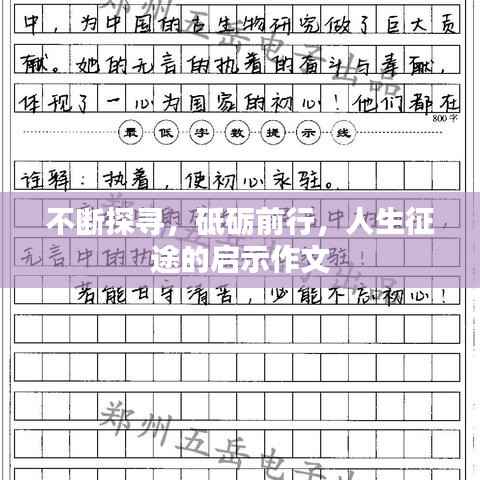 中，为中国的产生物研究做了巨大贡
献。她的无言的执着的奋斗与奉献，
体现了一心为国家的初心！他们都在
800字
最低字数提示线
诠释：执着，使初心永驻。
不断探寻，砥砺前行，人生征
途的启示作文
若能甘守清苦，必能不忘初心！
郑州五岳电子出品
郑州五岳电子出品